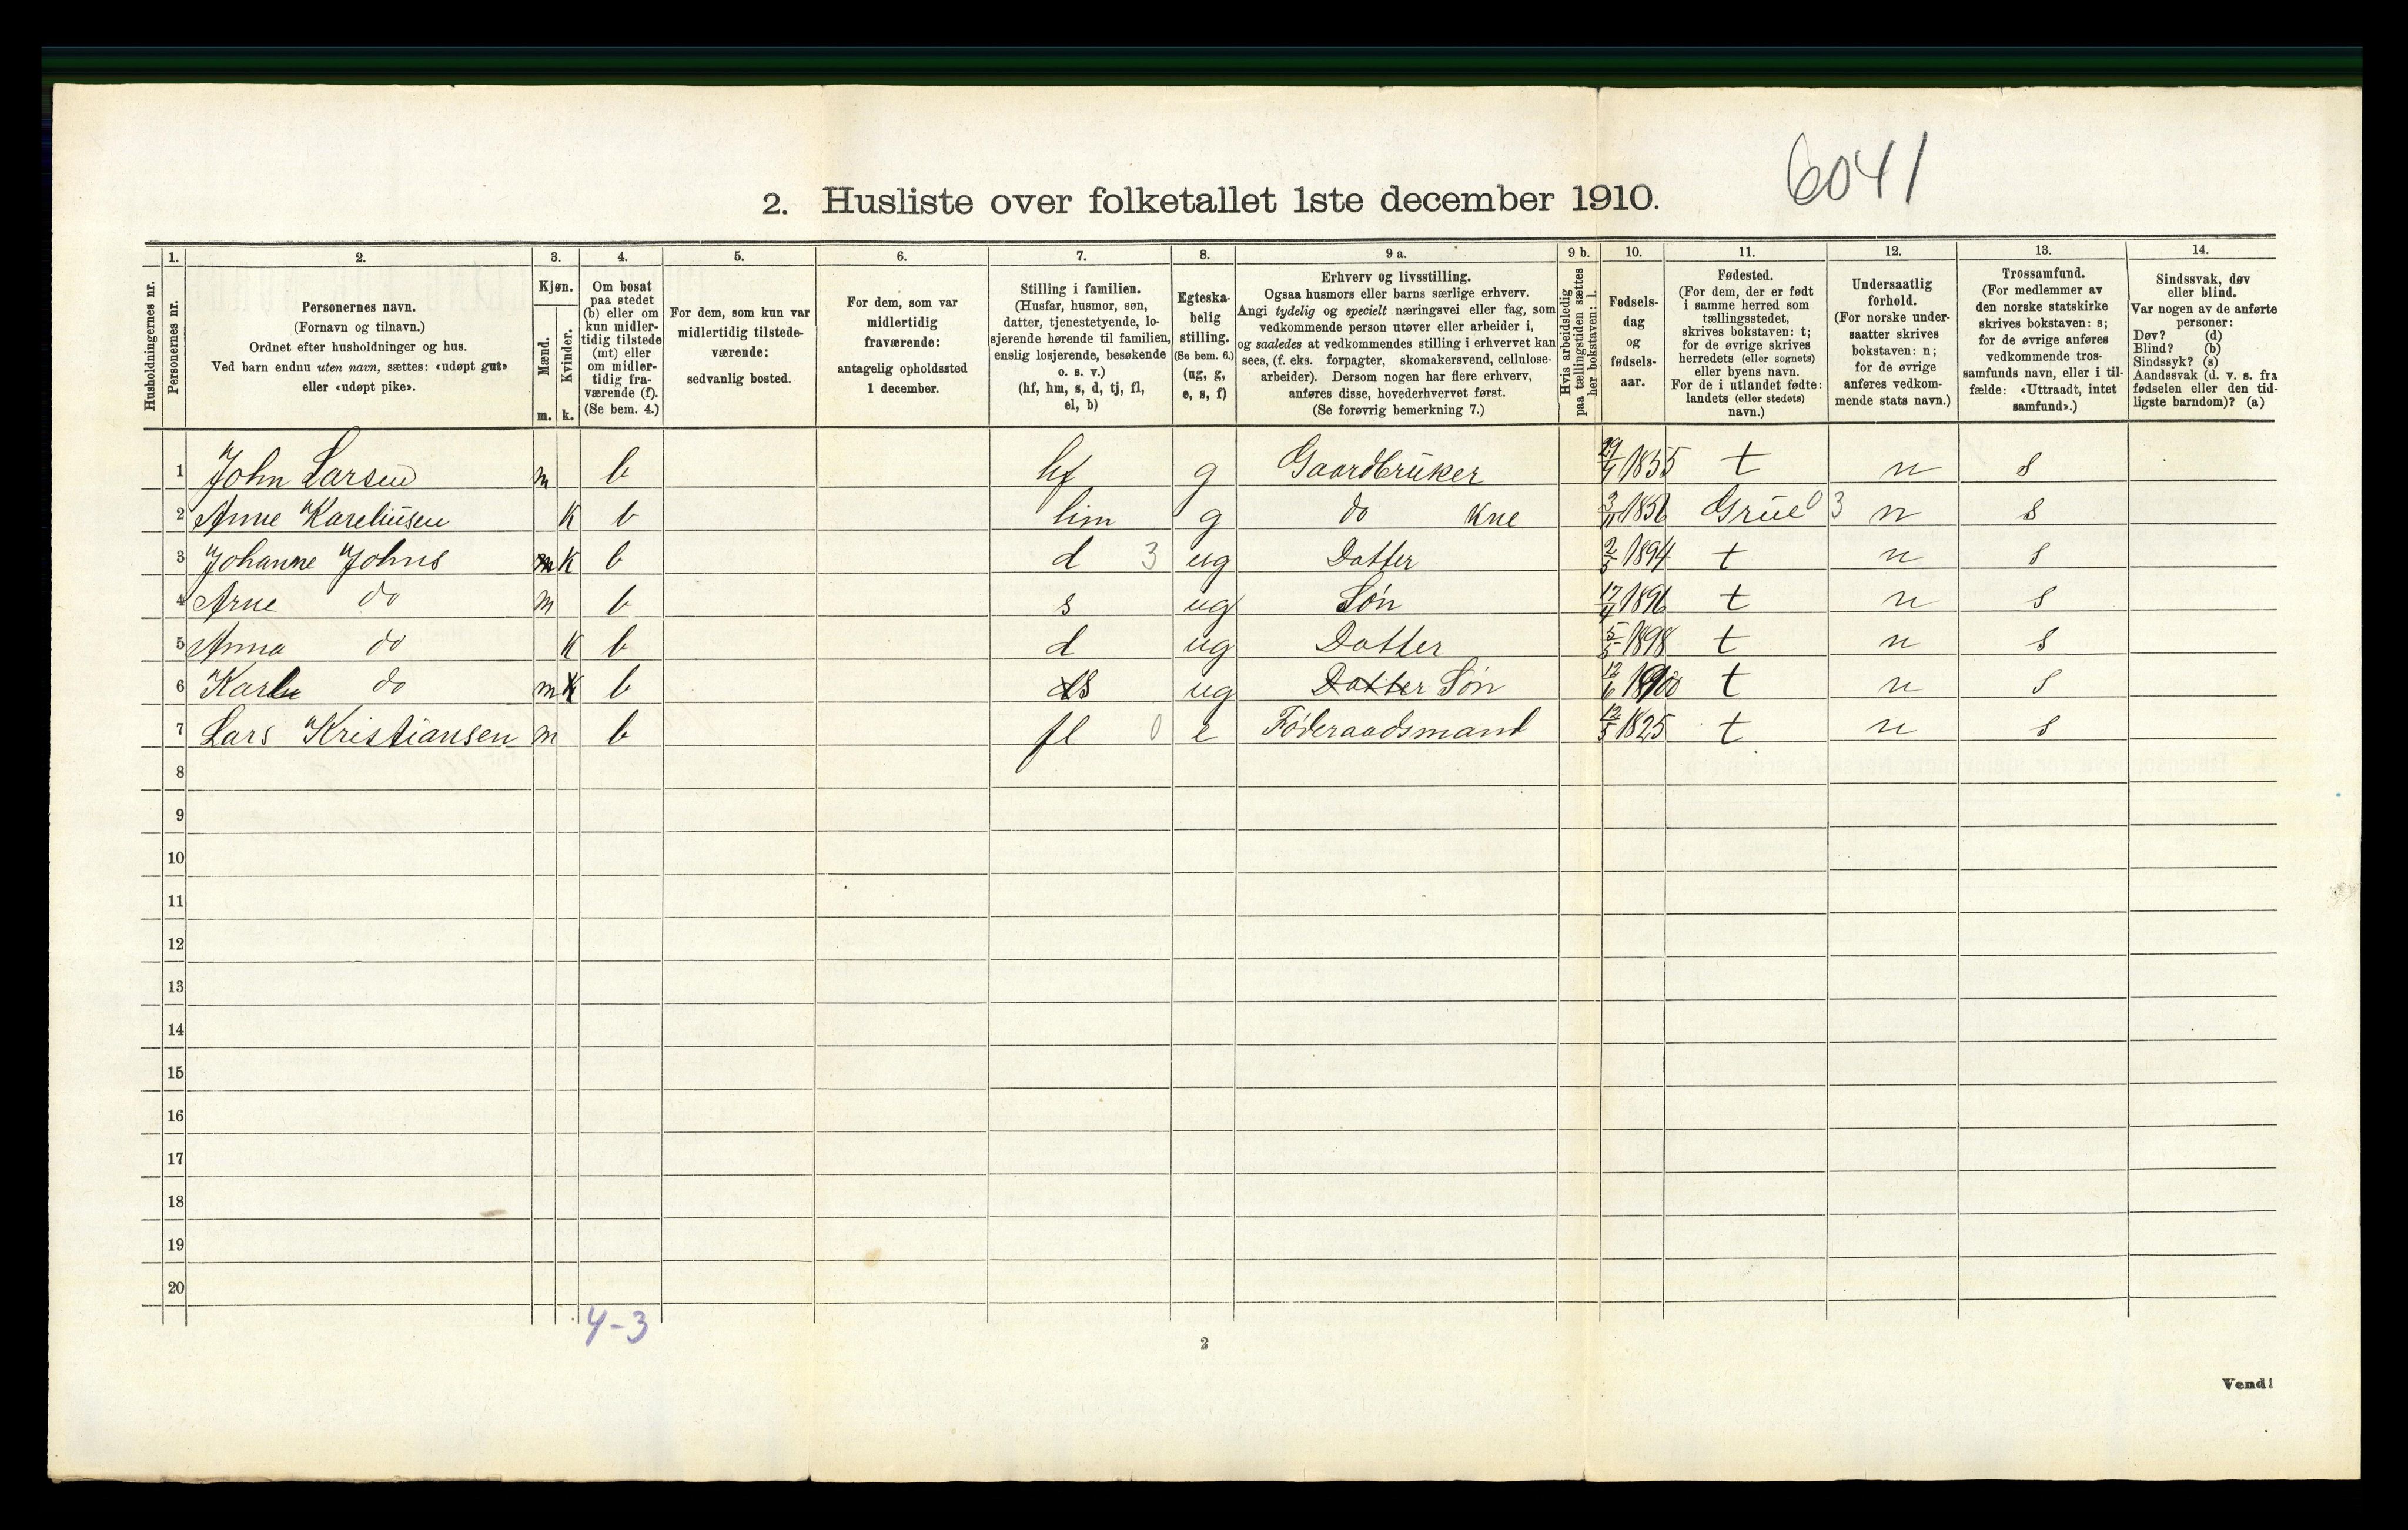 6041
2. Husliste over folketallet 1ste december 1910.
1. 2. 3. 4. 5. 6. 7. 8. 9 a. 9 b. 10. 11. 12. 13. 14.
Husholdningernes nr.
Personernes nr.
Personernes navn.
(Fornavn og tilnavn.)
Ordnet efter husholdninger og hus.
Ved barn endnu uten navn, sættes: «udøpt gut»
eller «udøpt pike».
Kjøn.
Mænd.
Kvinder.
m. k.
Om bosat
paa stedet
(b) eller om
kun midler-
tidig tilstede
(mt) eller
om midler-
tidig fra-
værende (f).
(Se bem. 4.)
For dem, som kun var
midlertidig tilstede-
værende:
sedvanlig bosted.
For dem, som var
midlertidig
fraværende:
antagelig opholdssted
1 december.
Stilling i familien.
(Husfar, husmor, søn,
datter, tjenestetyende, lo-
sjerende hørende til familien,
enslig losjerende, besøkende
o. s. v.)
(hf, hm, s, d, tj, fl,
el, b)
Egteska-
belig
stilling.
(Se bem. 6.)
(ug, g,
e, s, f)
Erhverv og livsstilling.
Ogsaa husmors eller barns særlige erhverv.
Angi tydelig og specielt næringsvei eller fag, som
vedkommende person utøver eller arbeider i,
og saaledes at vedkommendes stilling i erhvervet kan
sees, (f. eks. forpagter, skomakersvend, cellulose-
arbeider). Dersom nogen har flere erhverv,
anføres disse, hovederhvervet først.
(Se forøvrig bemerkning 7.)
Hvis arbeidsledig
paa tællingstiden sættes
her bokstaven: l.
Fødsels-
dag
og
fødsels-
aar.
Fødested.
(For dem, der er født
i samme herred som
tællingsstedet,
skrives bokstaven: t;
for de øvrige skrives
herredets (eller sognets)
eller byens navn.
For de i utlandet fødte:
landets (eller stedets)
navn.)
Undersaatlig
forhold.
(For norske under-
saatter skrives
bokstaven: n;
for de øvrige
anføres vedkom-
mende stats navn.)
Trossamfund.
(For medlemmer av
den norske statskirke
skrives bokstaven: s;
for de øvrige anføres
vedkommende tros-
samfunds navn, eller i til-
fælde: «Uttraadt, intet
samfund».)
Sindssvak, døv
eller blind.
Var nogen av de anførte
personer:
Døv? (d)
Blind? (b)
Sindssyk? (s)
Aandssvak (d. v. s. fra
fødselen eller den tid-
ligste barndom)? (a)
1 John Larsen m b hf g Gaardbruker 1855 t n s
2 Anne Kareliusen k b hm g do Kne 3/11 Grue 03 n s
3 Johanne Johns m k b d 3 ug Datter 2/5 1894 t n s
4 Arne do m b s ug Søn 17/4 1896 t n s
5 Anna do k b d ug Datter 5/5 1898 t n s
6 Karl do m k b d s ug Datter Søn 12/6 1900 t n s
7 Lars Kristiansen m b fl 0 e Føderaadsmand 12/5 1825 t n s
8
9
10
11
12
13
14
15
16
17
18
19
20
4-3
2
Vend!